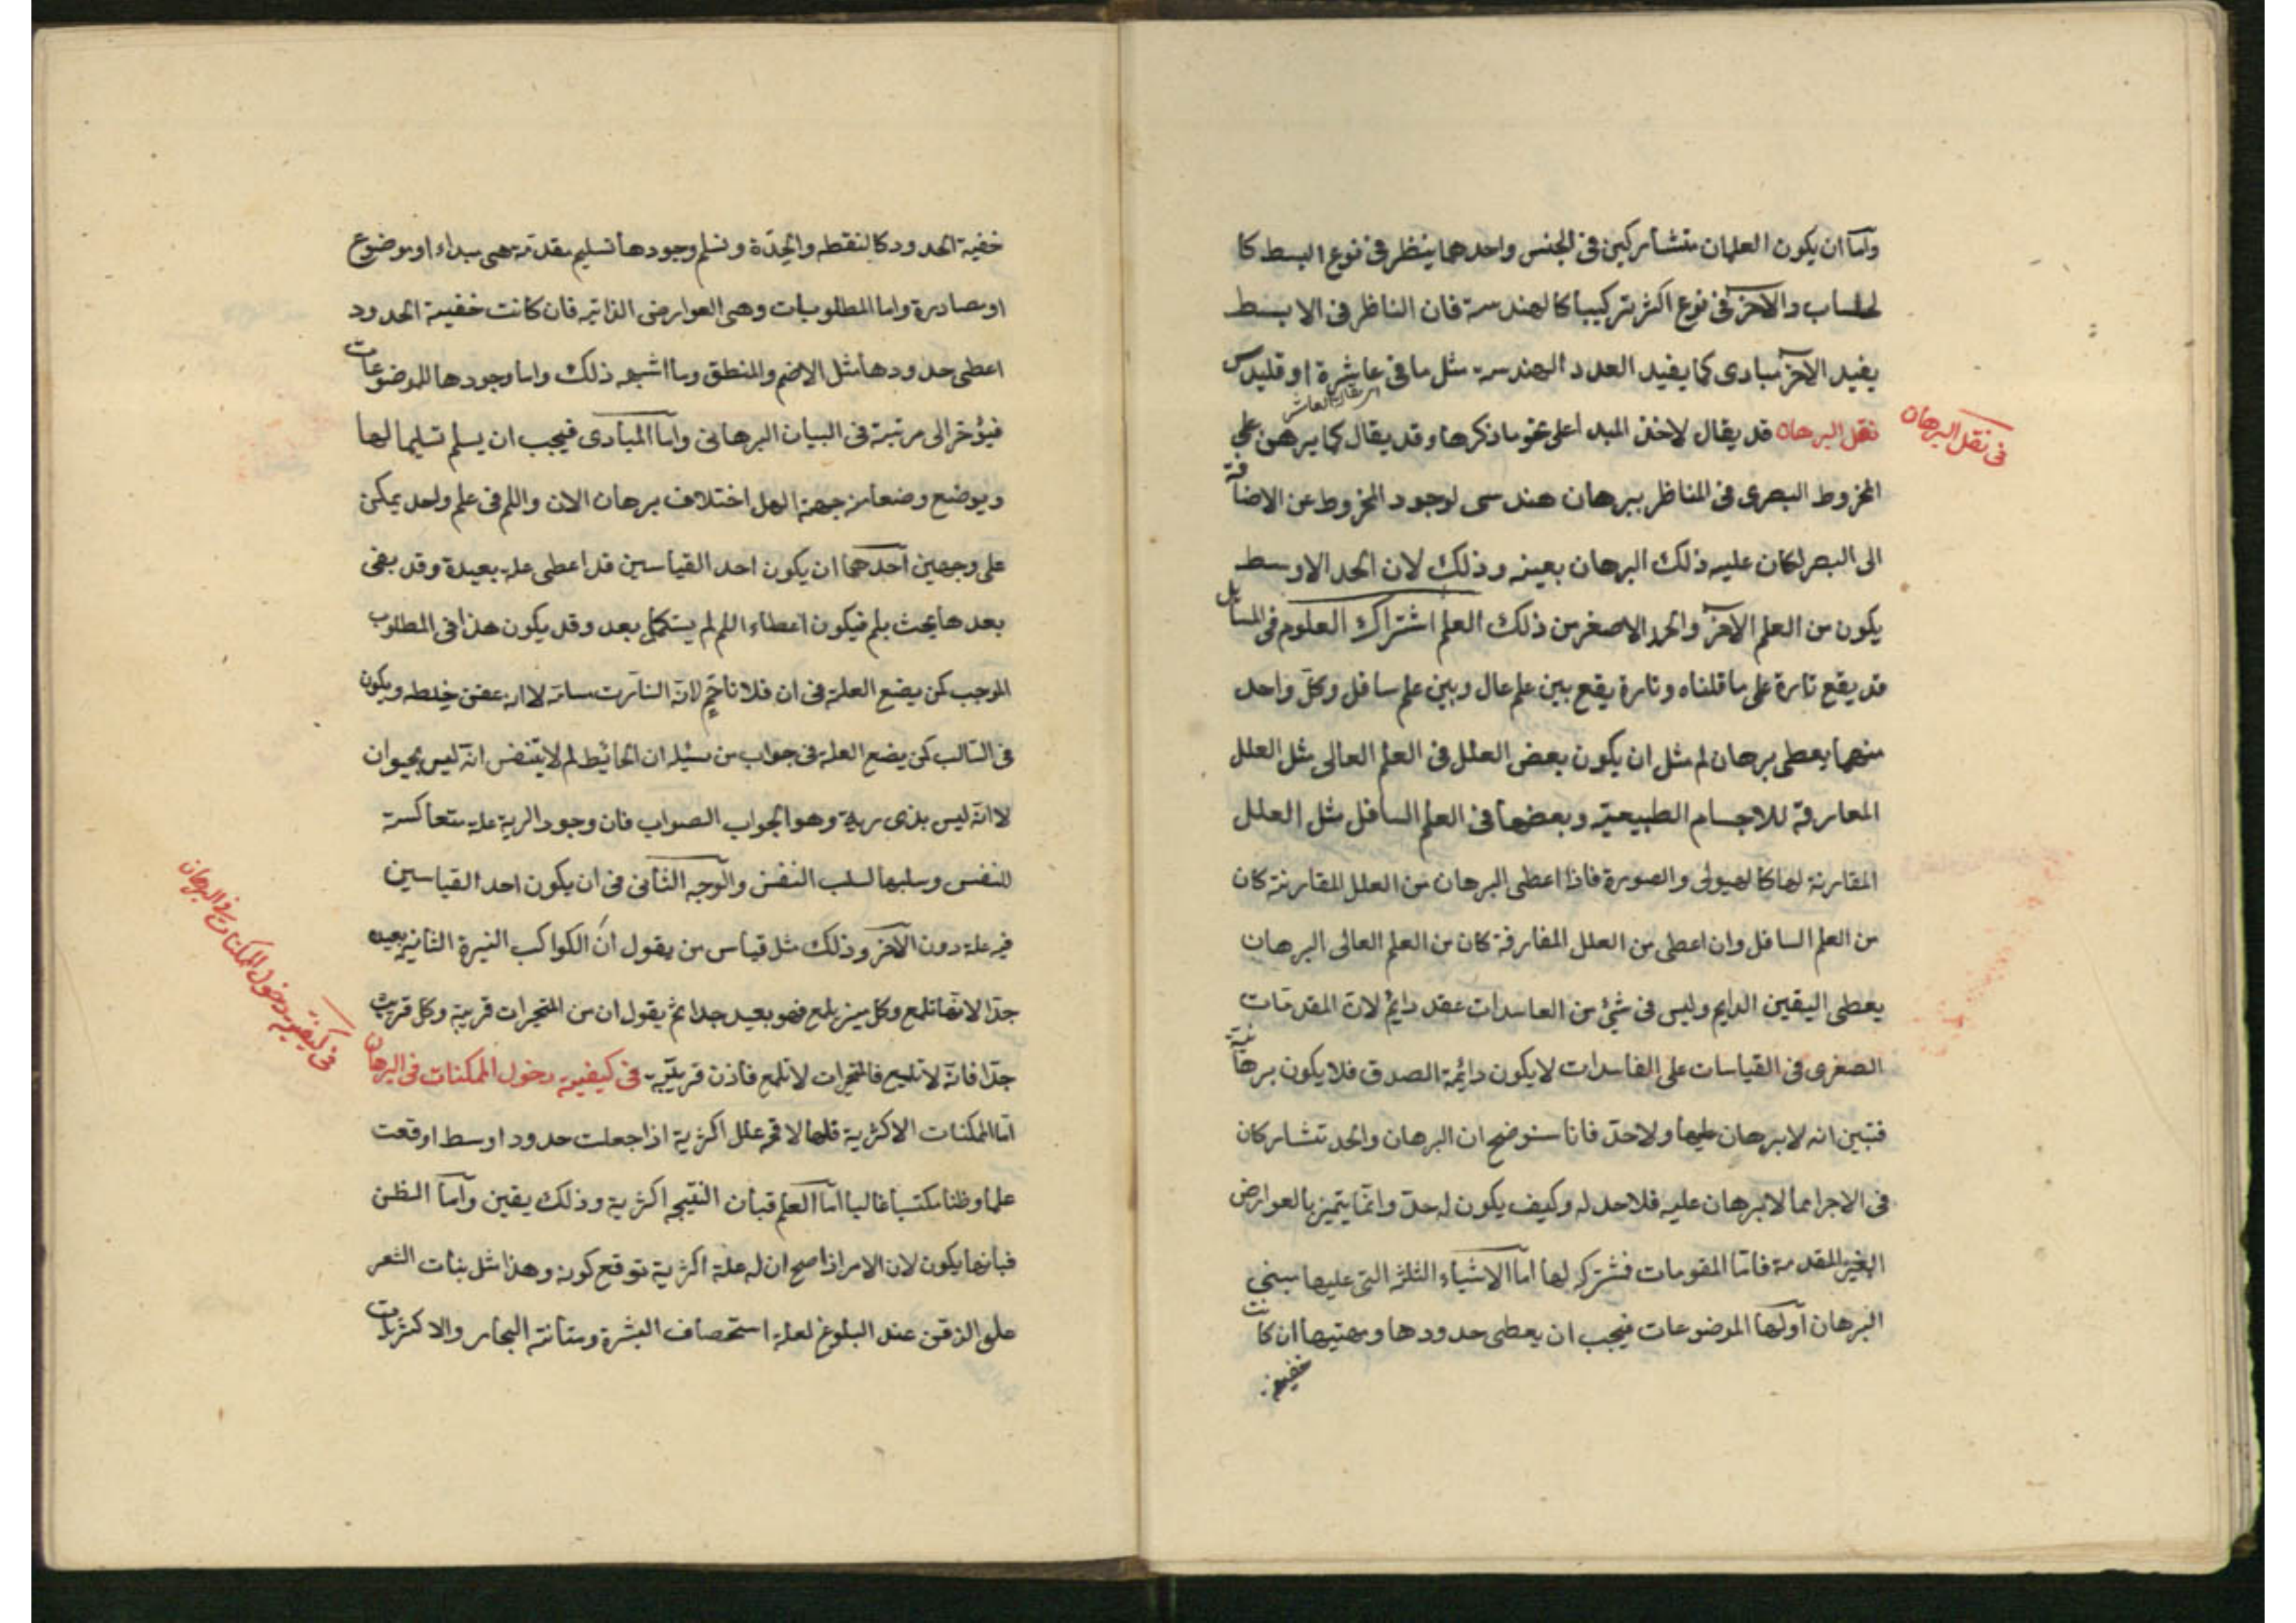 واما ان يكون العلمان متشاركين فى الجنس واحدهما ينظر فى نوع ابسط كا
لحساب والآخر فى نوع اكثر تركيبا كالهندسة فان الناظر فى الابسط
يفيد الآخر مبادى كما يفيد العدد الهندسة مثل ما فى عاشرة اوقليدس
المقالة العاشر
نقل البرهان قد يقال لاخذ المبدا على نحو ما ذكرها وقد يقال كما يرهن على
فى نقل البرهان
المخروط البصرى فى المناظر ببرهان هندسى لوجود المخروط عن الاضافة
الى البصر لكان عليه ذلك البرهان بعينه وذلك لان الحد الاوسط
يكون من العلم الآخر والحد الاصغر من ذلك العلم اشتراك العلوم فى المسايل
قد يقع تارة على ما قلناه وتارة يقع بين علم عال وبين علم سافل وكل واحد
منهما يعطى برهان لم مثل ان يكون بعض العلل فى العلم العالى مثل العلل
المعارفة للاجسام الطبيعية وبعضها فى العلم السافل مثل العلل
المقارنة لها كالهيولى والصورة فاذا اعطى البرهان من العلل المقارنة كان
من العلم السافل وان اعطى من العلل المفارقة كان من العلم العالى البرهان
يعطى اليقين الدايم وليس فى شئ من الفاسدات عقد دايم لان المقدمات
الصغرى فى القياسات على الفاسدات لا يكون دائمة الصدق فلا يكون برهانية
فتبين انه لا برهان عليها ولا حد فانا سنوضح ان البرهان والحد تتشاركان
فى الاجزا فما لا برهان عليه فلا حد له وكيف يكون له حد وانما يتميز بالعوارض
الغير المقدمة فاما المقومات فشتركه لها اما الاشياء الثلثة التى عليها مبنى
البرهان اولها الموضوعات فيجب ان يعطى حدودها ومهيتها ان كانت
خفية
خفية الحدود كالنقطة والوحدة وتسلم وجودها تسليم مقدمة هى مبداء او موضوع
او مصادرة واما المطلوبات وهى العوارض الذاتية فان كانت خفية الحدود
اعطى حدودها مثل الاصم والمنطق وما اشبه ذلك واما وجودها للموضوعات
فيؤخر الى مرتبة فى البيان البرهانى واما المبادى فيجب ان يسلم تسليما لها
ويوضع وضعا من جهة الهل اختلاف برهان الان واللم فى علم واحد يمكن
على وجهين احدهما ان يكون احد القياسين قد اعطى علة بعيدة وقد بقى
بعدها يحث بلم فيكون اعطاء اللم لم يستكمل بعد وقد يكون هذا فى المطلوب
الموجب كمن يضع العلة فى ان فلانا حم لانه انسدت مسامه لا انه عفن خلطه ويكون
فى السالب كمن يضع العلة فى جواب من سئله ان الحائيط لم لا يتنفس انه ليس بحيوان
لا انه ليس بذى رية وهو الجواب الصواب فان وجود الرية علة متعاكسة
للنفس وسلبها لسلب النفس والوجه الثانى فى ان يكون احد القياسين
فيه علة دون الآخر وذلك مثل قياس من يقول ان الكواكب النيرة الثانية بعيده
جدا لانها تلمع وكل منير يلمع فهو بعيد جدا ثم يقول ان من المتحيرات قريبة وكل قريب
جدا فانه لا تلمع فالمتحيرات لا تلمع فاذن قريبة فى كيفية دخول الممكنات فى البرهان
فى كيفية دخول الممكنات فى البرهان
اما الممكنات الاكثرية فلها لا محة علل اكثرية اذا جعلت حدود اوسط اوقعت
علما وظنا مكتسبا غالبا اما العلم فبان النتيجه اكثرية وذلك يقين واما الظن
فبانها يكون لان الامر اذا صح ان له علة اكثرية توقع كونه وهذا مثل نبات الشعر
على الذقن عند البلوغ لعلة استحصاف البشرة ومتانة البخار والاكثريات